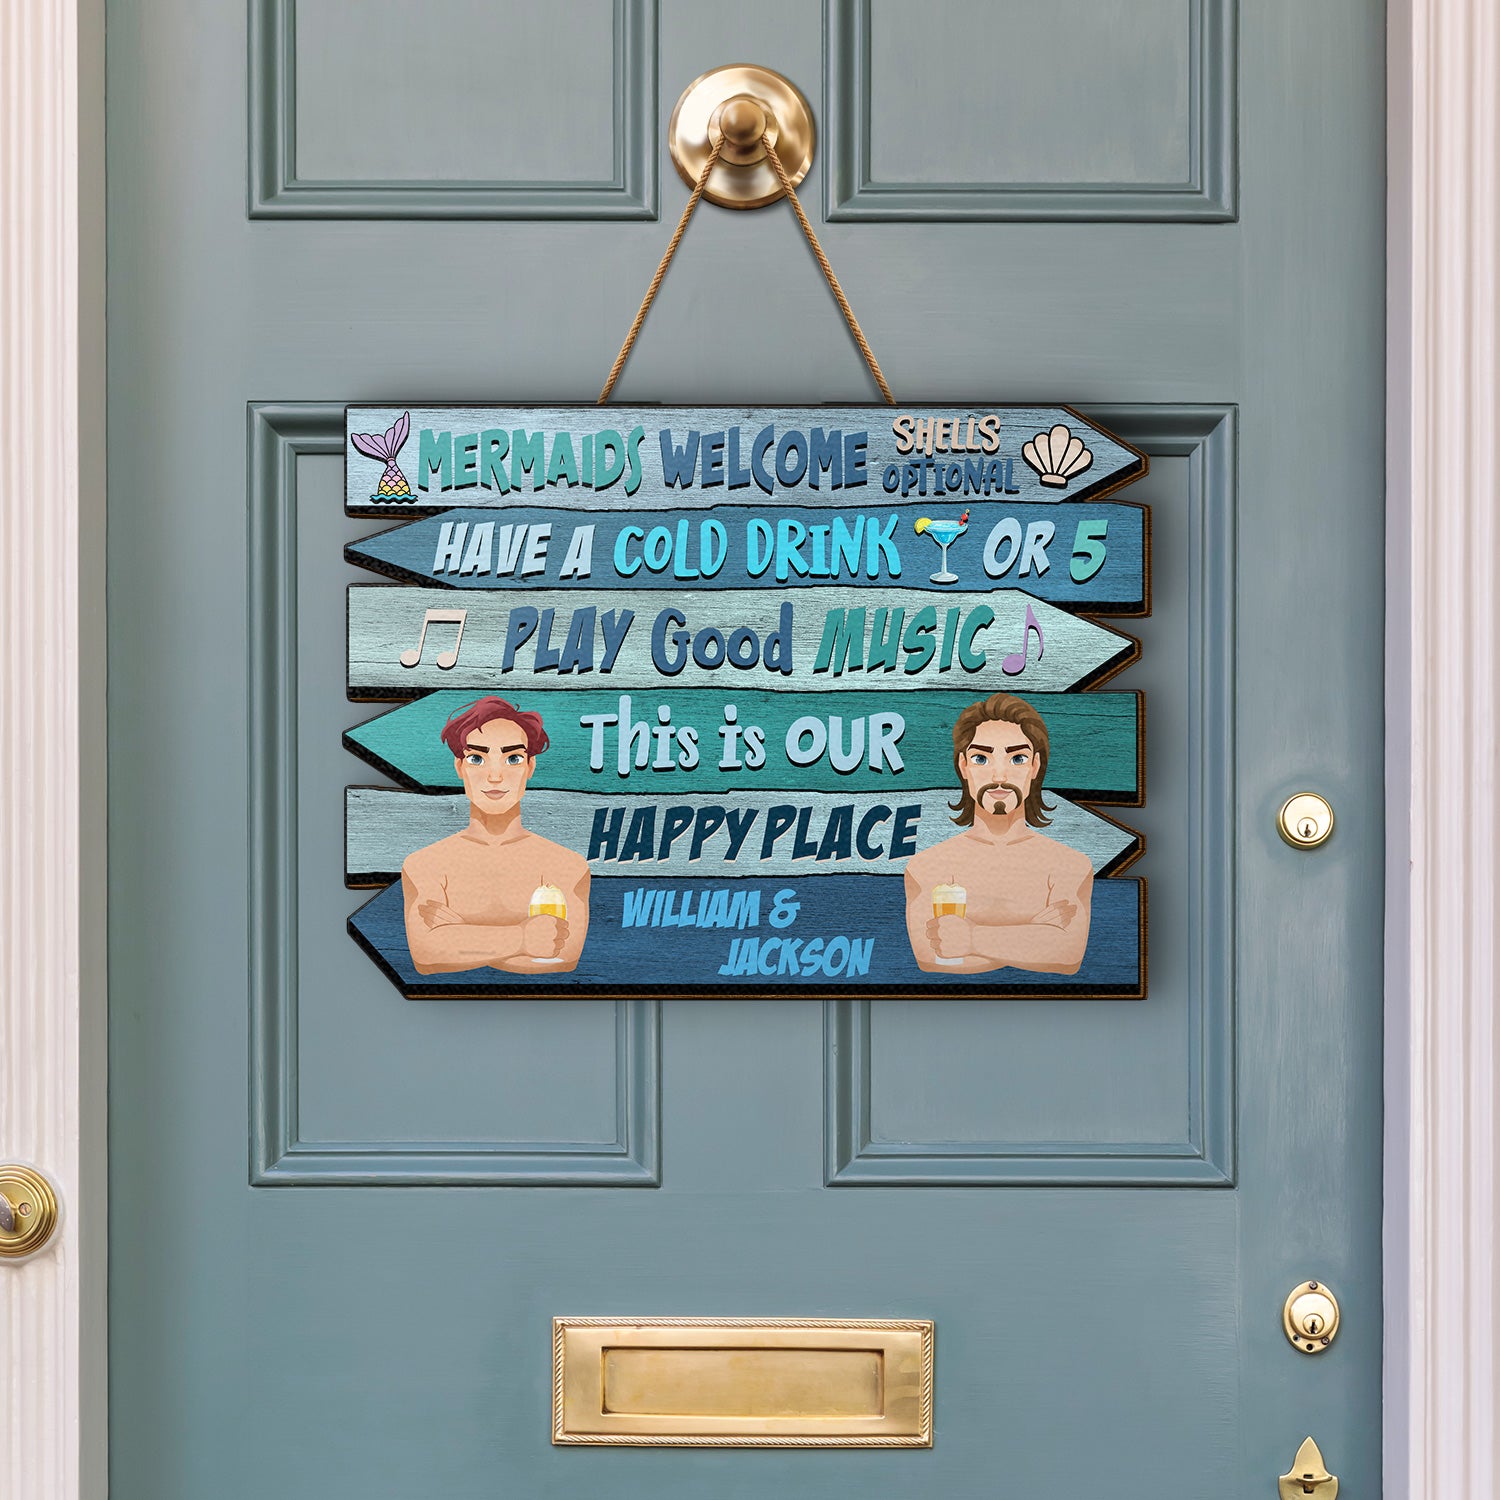 MERMAIDS WELCOME SHELLS OPTIONAL
HAVE A COLD DRINK OR 5
PLAY Good MUSIC
This is OUR
HAPPY PLACE
WILLIAM &
JACKSON